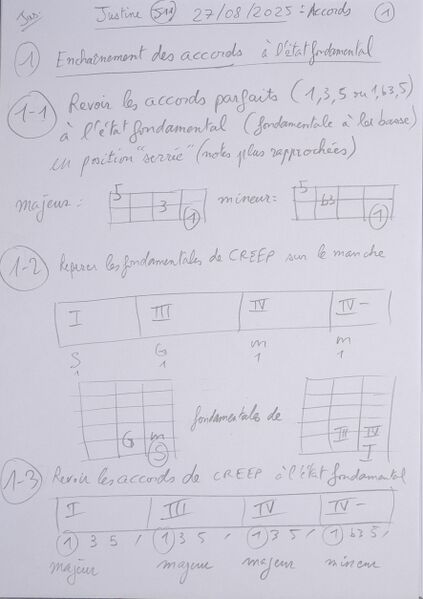 Justine 27/08/2025 : Accords 1
1 Enchaînement des accords à l'état fondamental
1-1 Revoir les accords parfaits (1,3,5 ou 1,b3,5)
à l'état fondamental (fondamentale à la basse)
en position "serrée" (notes plus rapprochées)
majeur : 5 3 1 mineur : 5 b3 1
1-2 Repérer les fondamentales de CREEP sur le manche
I III IV IV-
S G m m
1 1 1 1
fondamentales de
G m III IV
S I
1-3 Revoir les accords de CREEP à l'état fondamental
I III IV IV-
1 3 5 / 1 3 5 / 1 3 5 / 1 b3 5 /
majeur majeur majeur mineur